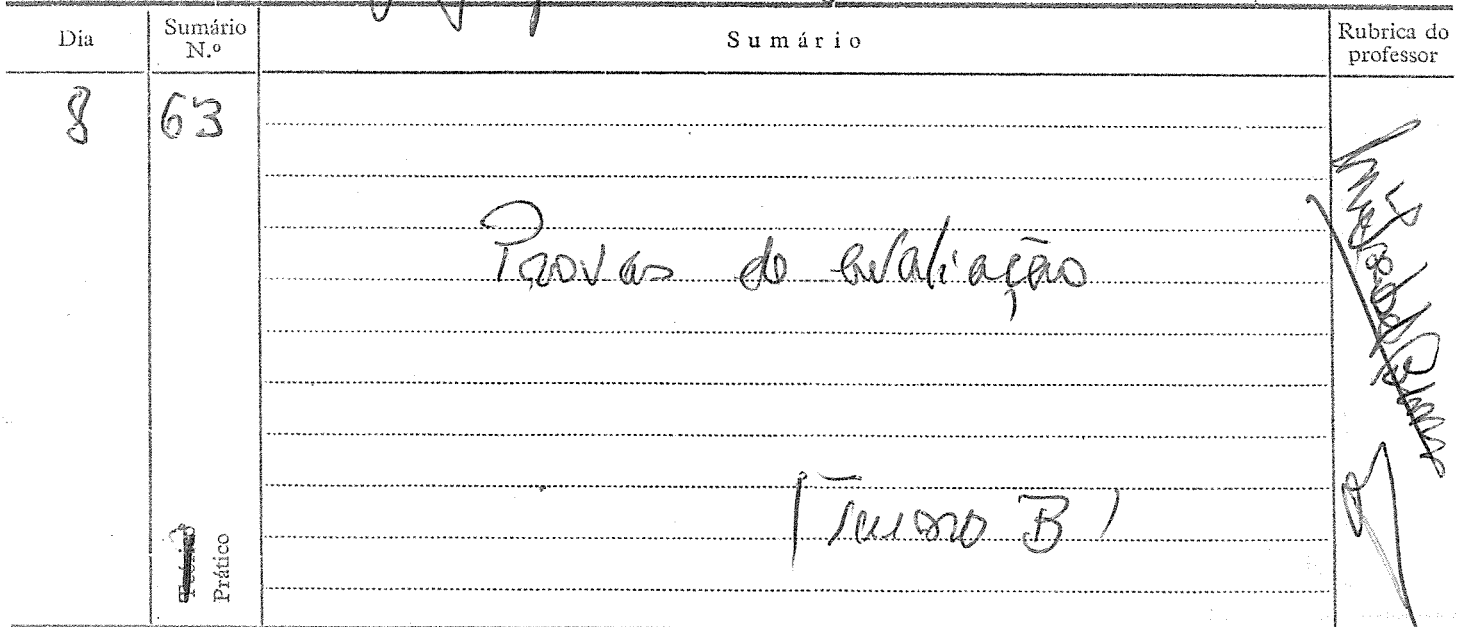 Dia
Sumário N.º
Sumário
Rubrica do professor
8
63
Provas de avaliação
(Turno B)
Teórico
Prático